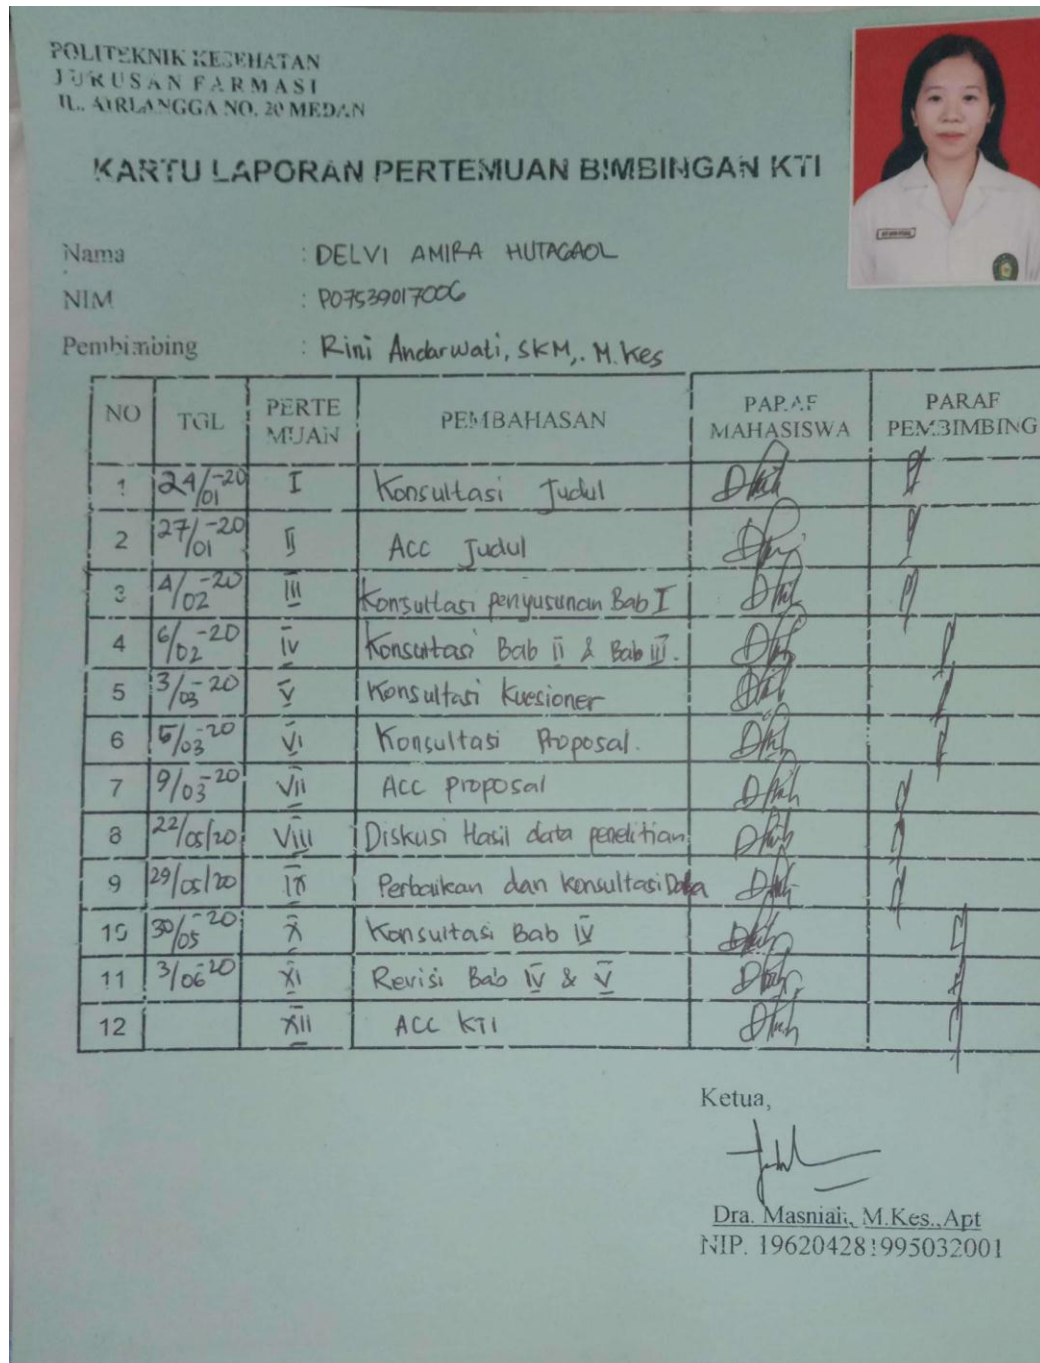 POLITEKNIK KESEHATAN
JURUSAN FARMASI
JL. AIRLANGGA NO. 20 MEDAN
KARTU LAPORAN PERTEMUAN BIMBINGAN KTI
Nama : DELVI AMIRA HUTAGAOL
NIM : P07539017006
Pembimbing : Rini Andarwati, SKM,. M.Kes
NO TGL PERTE MUAN PEMBAHASAN PARAF MAHASISWA PARAF PEMBIMBING
1 24/01-20 I Konsultasi Judul
2 27/01-20 II ACC Judul
3 4/02-20 III Konsultasi penyusunan Bab I
4 6/02-20 IV Konsultasi Bab II & Bab III.
5 3/03-20 V Konsultasi Kuesioner
6 5/03-20 VI Konsultasi Proposal.
7 9/03-20 VII ACC proposal
8 22/05/20 VIII Diskusi Hasil data penelitian
9 29/05/20 IX Perbaikan dan konsultasi Data
10 30/05-20 X Konsultasi Bab IV
11 3/06-20 XI Revisi Bab IV & V
12 XII ACC KTI
Ketua,
Dra. Masniah, M.Kes.,Apt
NIP. 196204281995032001